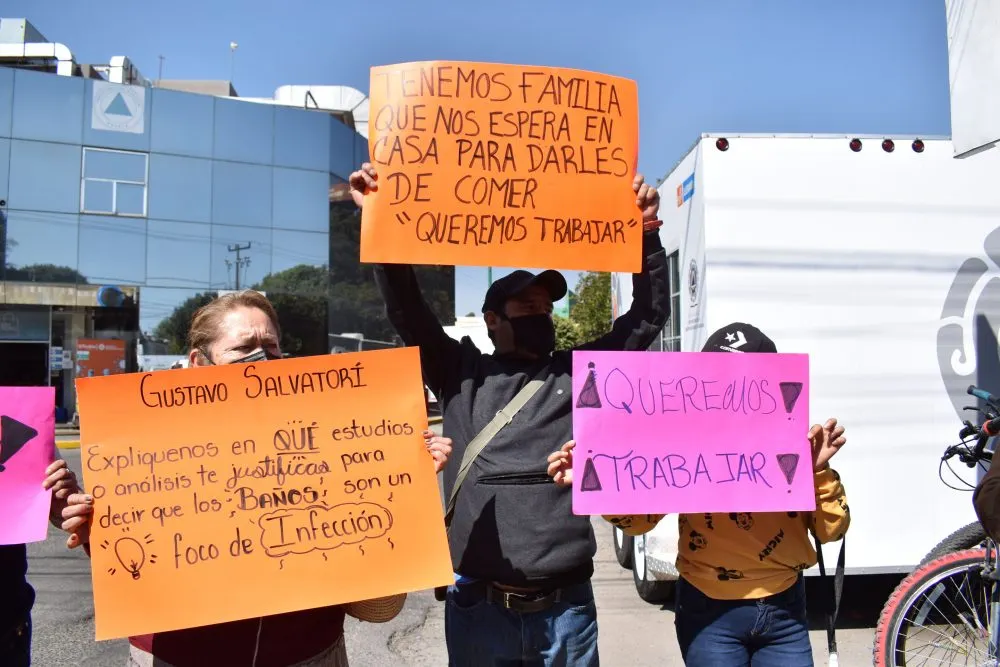 TENEMOS FAMILIA
QUE NOS ESPERA EN
CASA PARA DARLES
DE COMER
"QUEREMOS TRABAJAR"
GUSTAVO SALVATORÍ
Expliquenos en QUÉ estudios
o análisis te justificas para
decir que los BAÑOS, son un
foco de Infección
¡QUEREMOS!
¡TRABAJAR!
CONVERSE